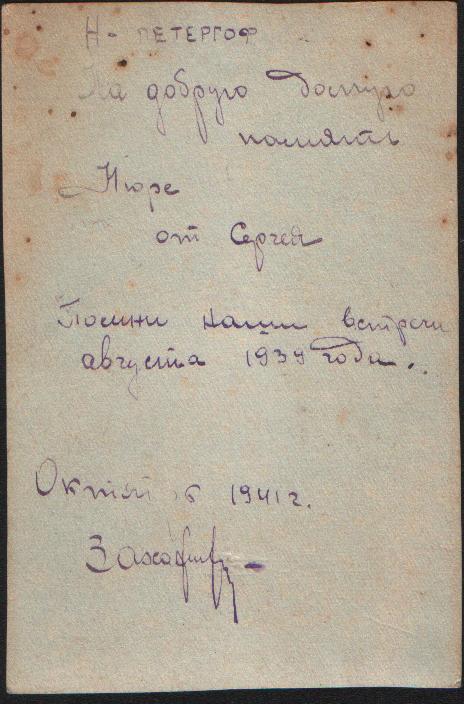 Н- ПЕТЕРГОФ
На добрую долгую
память
Нюре
от Сергея
Помни наши встречи
августа 1939 года..
Октя 1941 г.